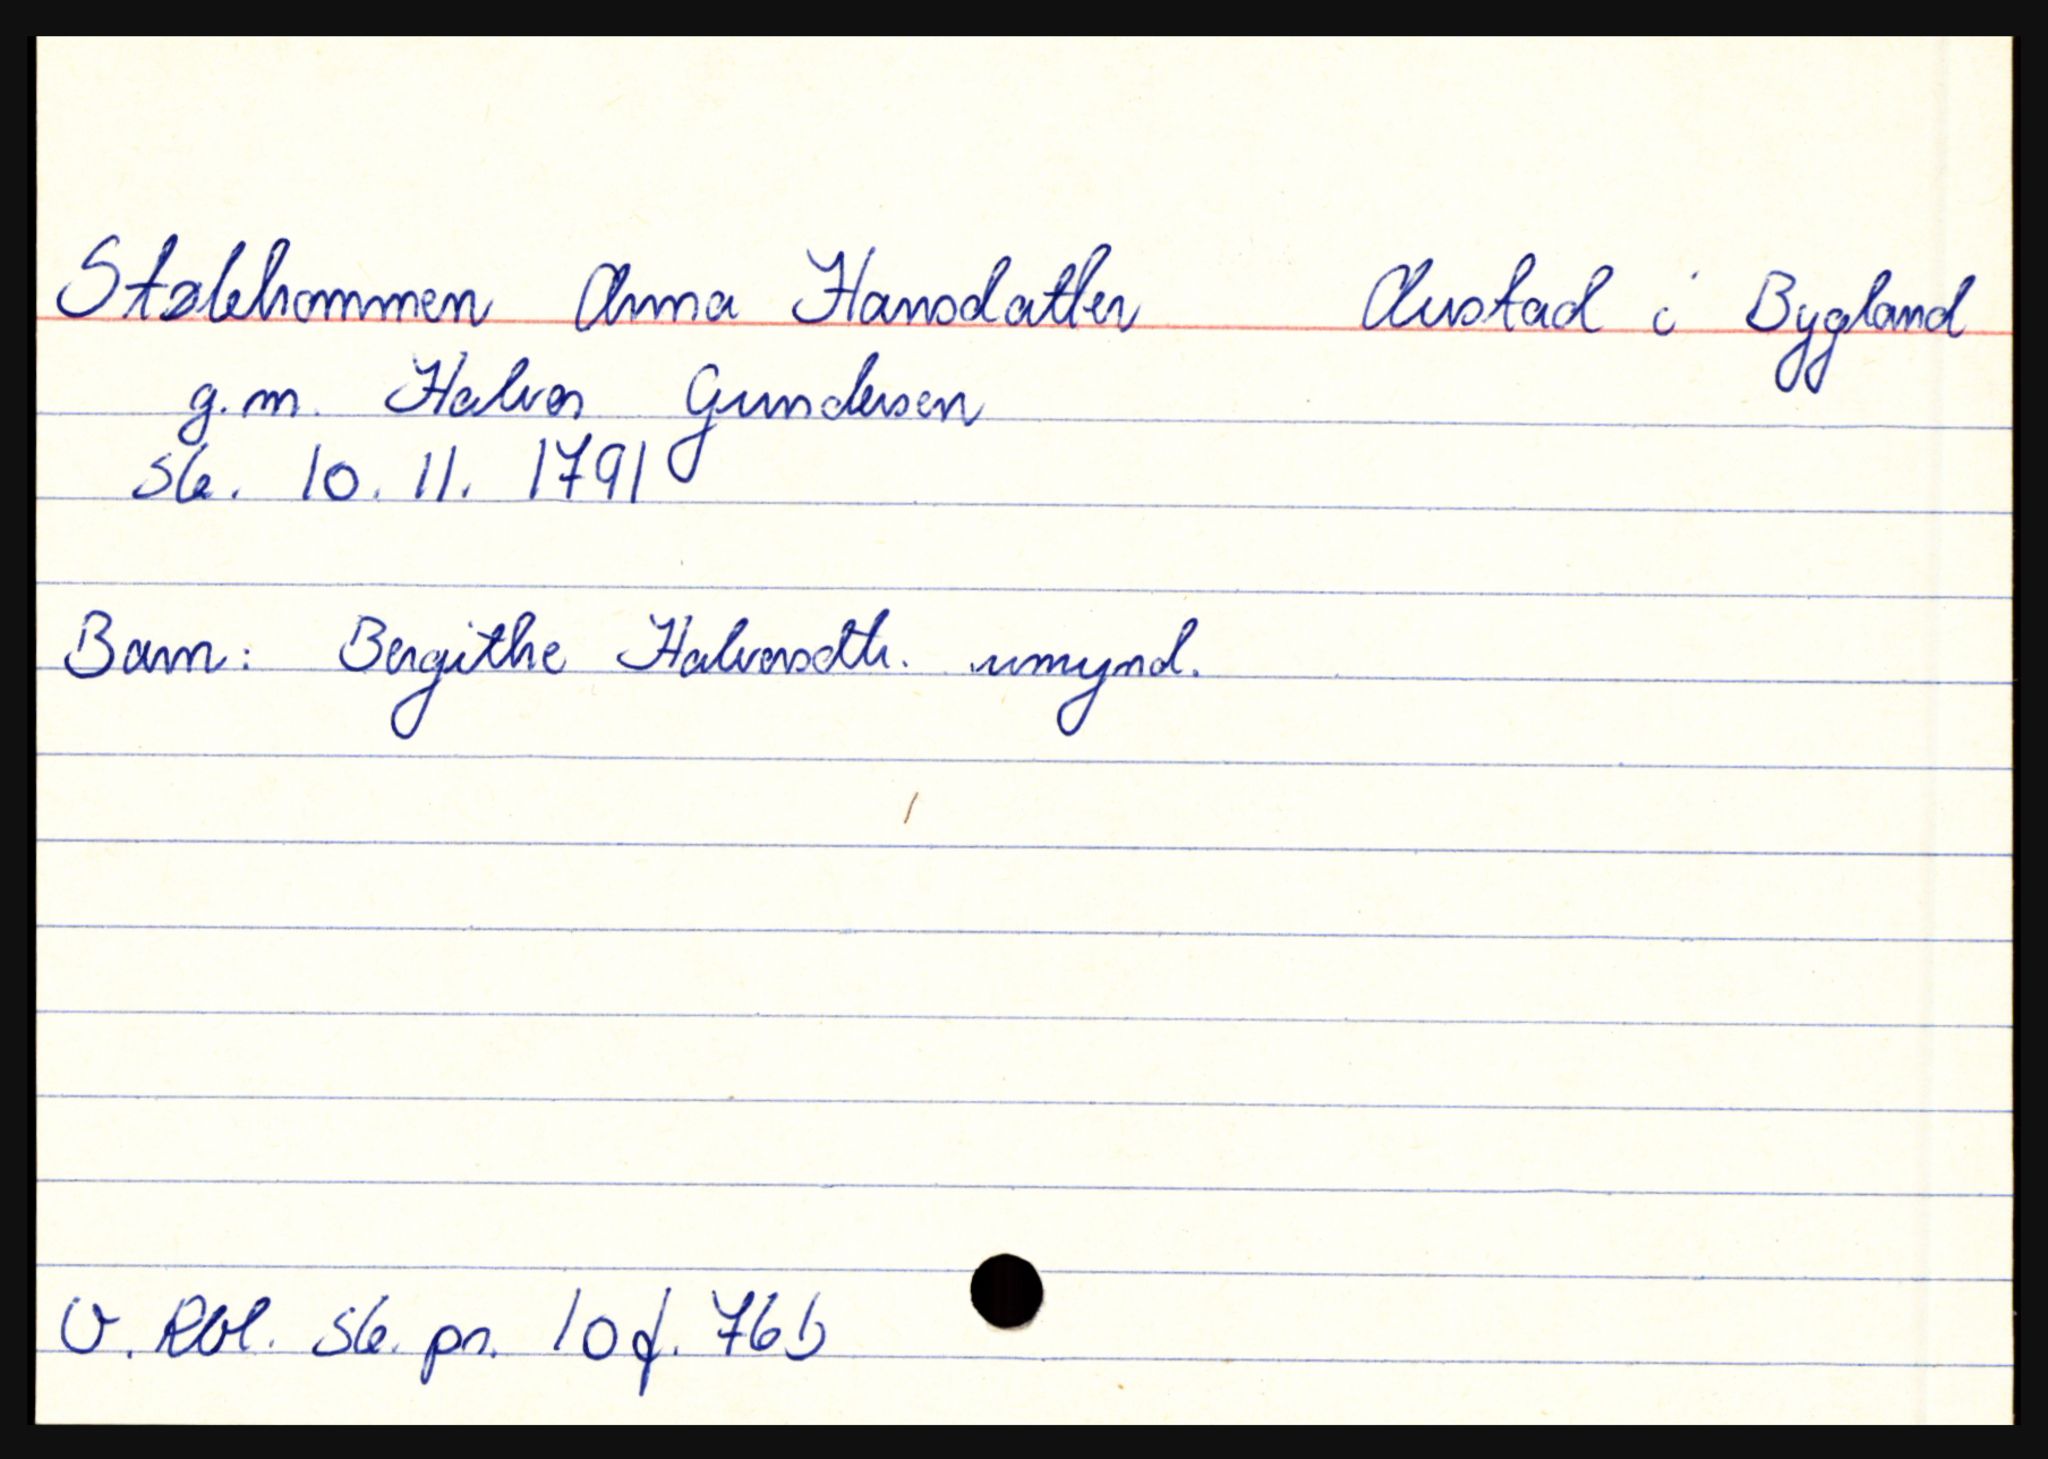 Stølehommen Anna Hansdatter Austad i Bygland
g.m. Halvor Gundersen
Sk. 10. 11. 1791
Barn: Bergithe Halvorsdtr. umynd.
V. Rbl. Sk. pr. 10 f. 76 b